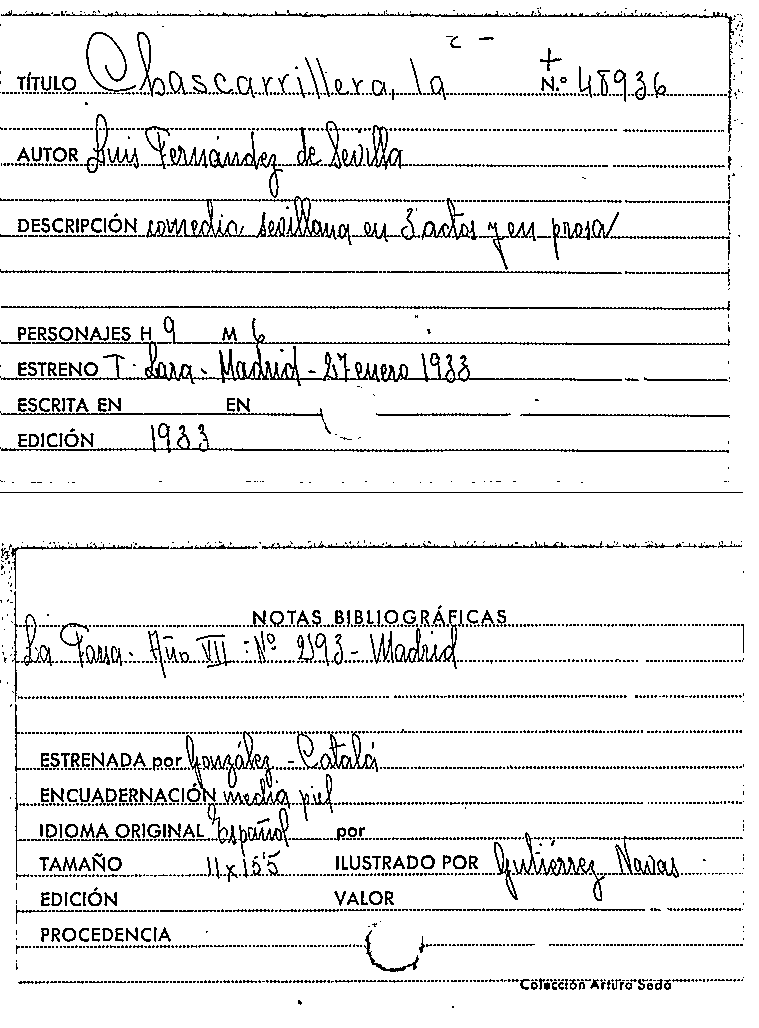 TÍTULO Chascarrillera, la + N.º 48936
AUTOR Luis Fernández de Sevilla
DESCRIPCIÓN comedia sevillana en 3 actos y en prosa
PERSONAJES H 9 M 6
ESTRENO T. Lara - Madrid - 27 enero 1933
ESCRITA EN EN
EDICIÓN 1933
NOTAS BIBLIOGRÁFICAS
La Farsa. Año VII: Nº 293 - Madrid
ESTRENADA por González - Catalá
ENCUADERNACIÓN media piel
IDIOMA ORIGINAL Español por
TAMAÑO 11 x 15'5 ILUSTRADO POR Gutiérrez Navas
EDICIÓN VALOR
PROCEDENCIA
Colección Arturo Sedó